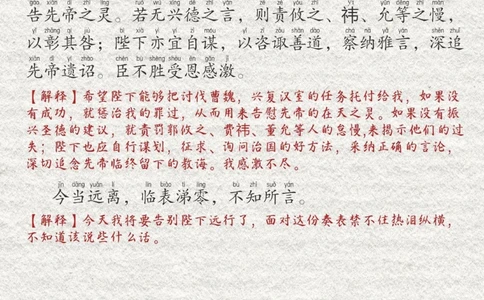 告先帝之灵。若无兴德之言，则责攸之、祎、允等之慢，
以彰其咎；陛下亦宜自谋，以咨诹善道，察纳雅言，深追
先帝遗诏。臣不胜受恩感激。
【解释】希望陛下能够把讨伐曹魏，兴复汉室的任务托付给我，如果没
有成功，就惩治我的罪过，从而用来告慰先帝的在天之灵。如果没有振
兴圣德的建议，就责罚郭攸之、费祎、董允等人的怠慢,来揭示他们的过
失；陛下也应自行谋划，征求、询问治国的好方法，采纳正确的言论，
深切追念先帝临终留下的教诲。我感激不尽。
jīn dāng yuǎn lí lín biǎo tì líng bù zhī suǒ yán
今当远离，临表涕零，不知所言。
【解释】今天我将要告别陛下远行了，面对这份奏表禁不住热泪纵横，
不知道该说些什么话。